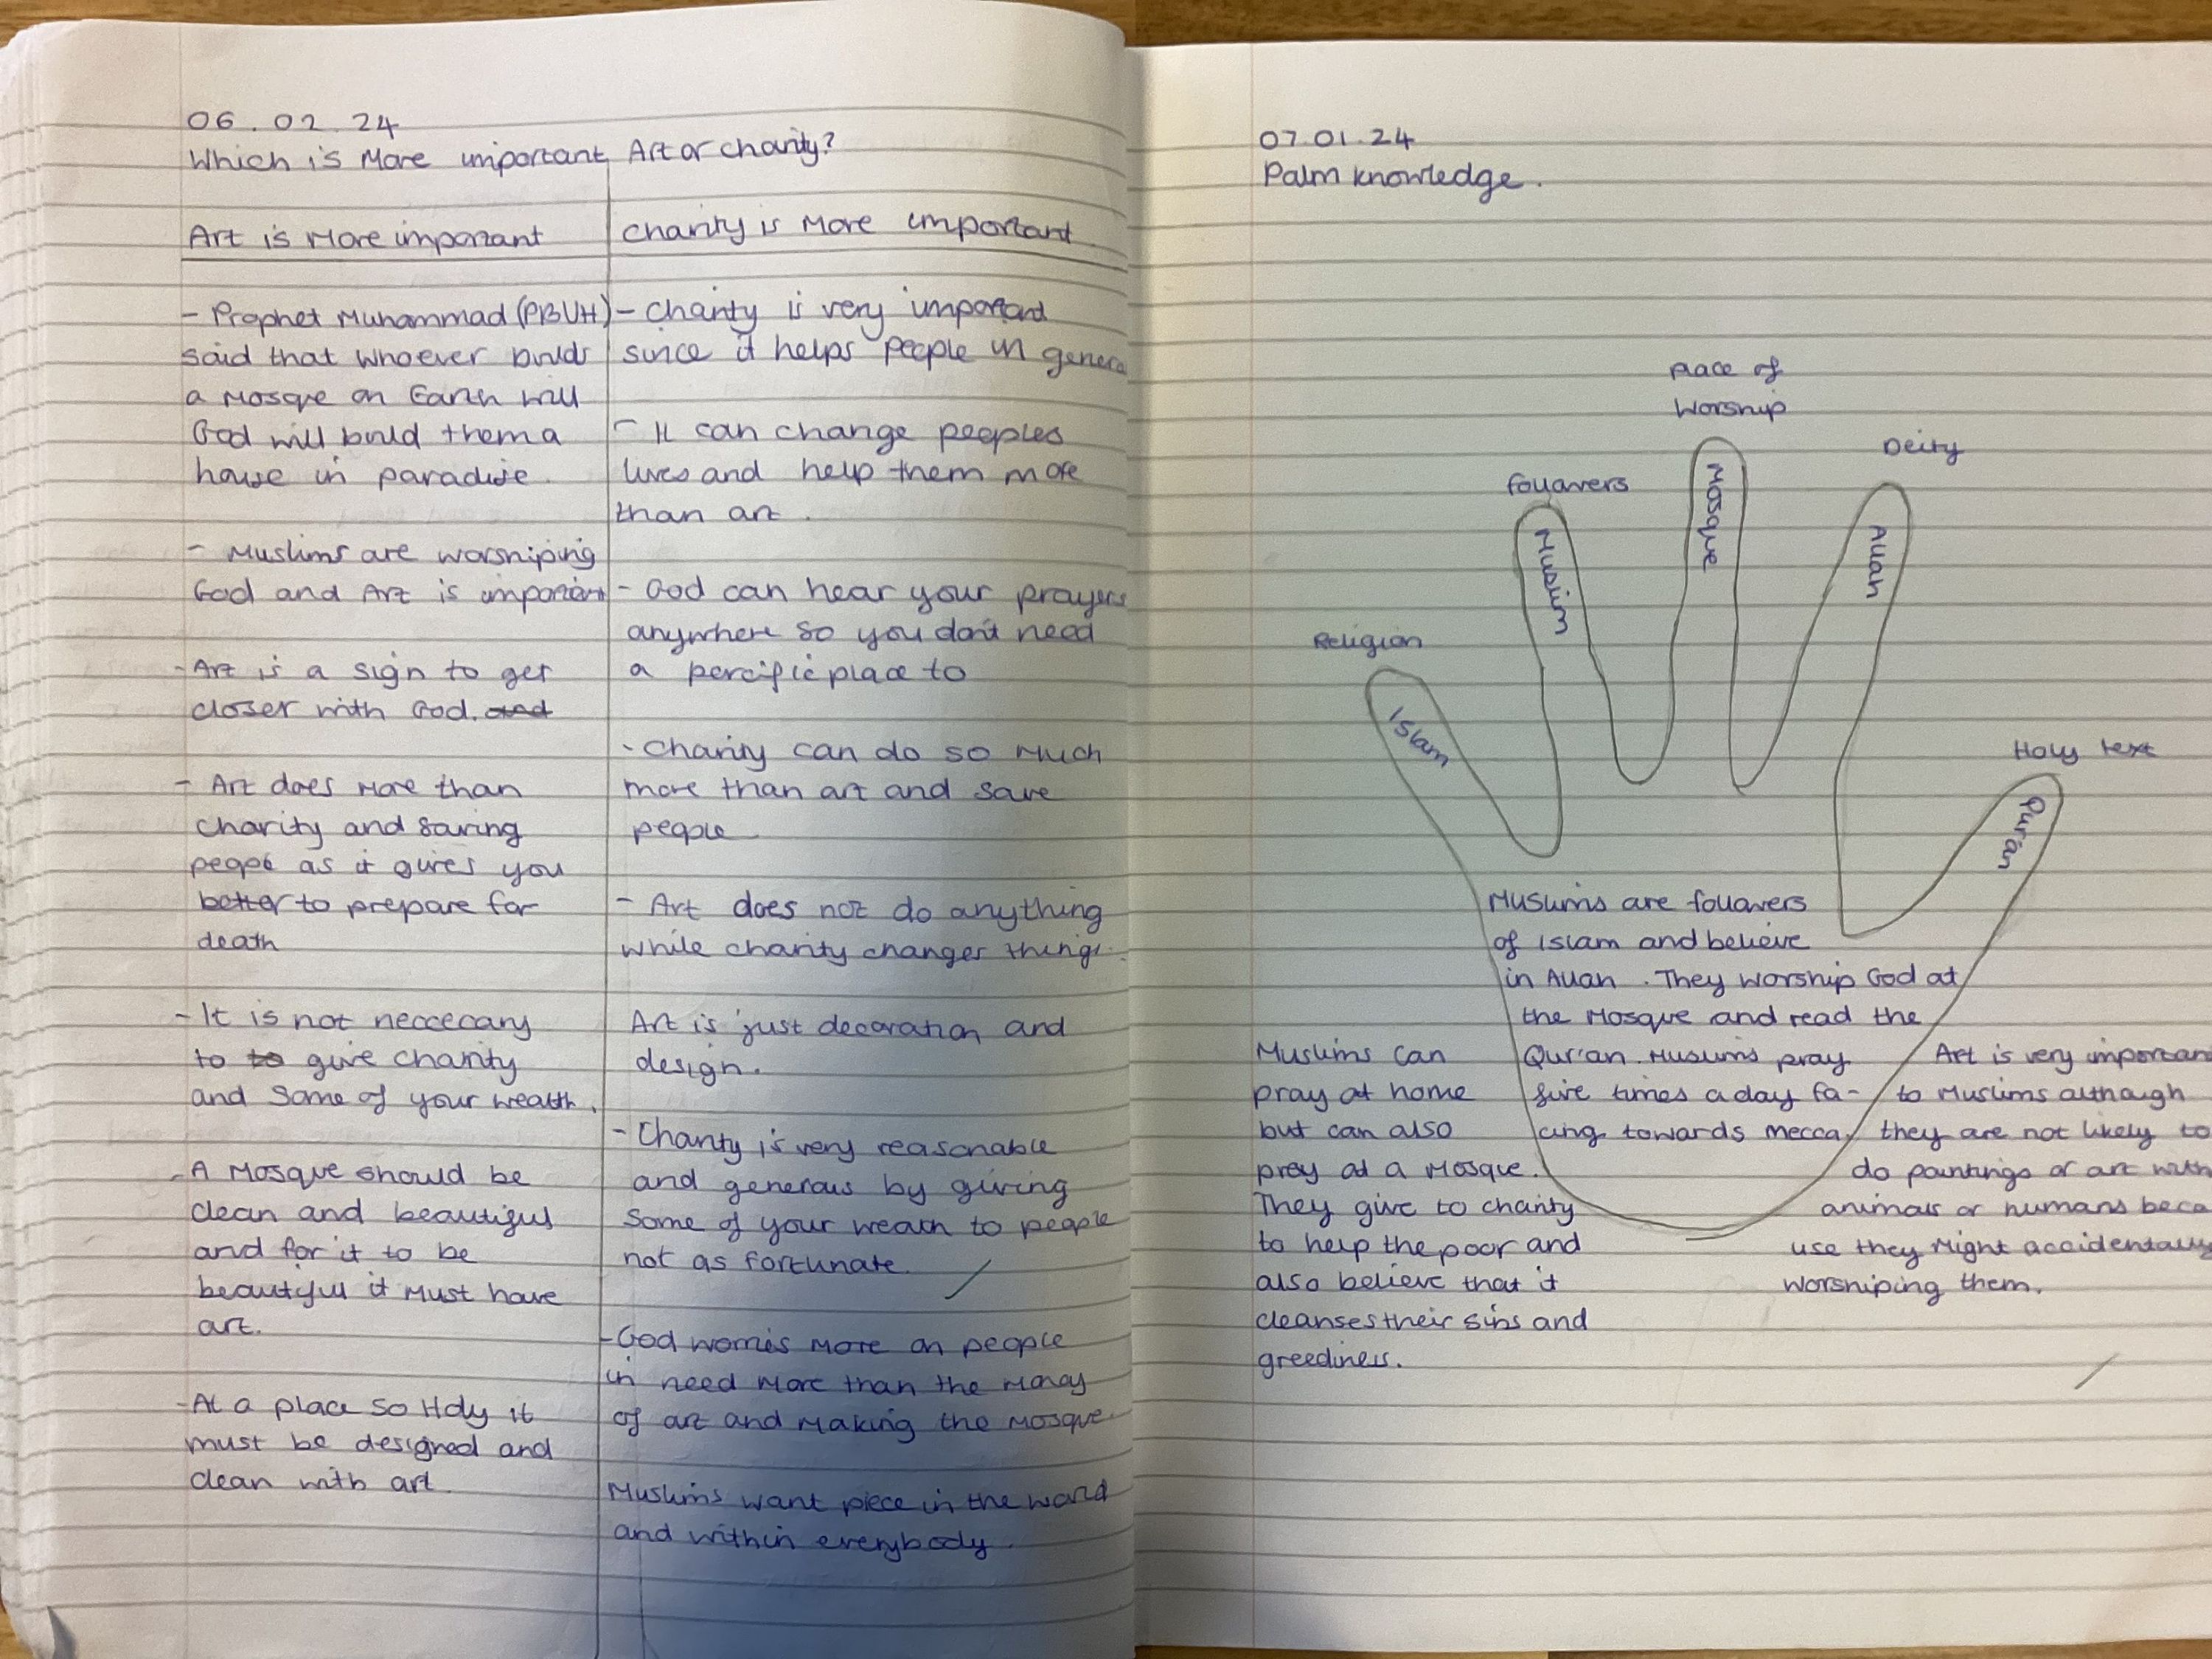 06.02.24
Which is More important Art or charity?
Art is More important
- Prophet Muhammad (PBUH)
said that whoever builds
a Mosque on Earth will
God will build them a
house in paradise.
- Muslims are worshiping
God and Art is important
- Art is a sign to get
closer with God. and
- Art does more than
charity and saving
peopl as it gives you
better to prepare for
death
- It is not neccecary
to to give charity
and some of your wealth.
- A Mosque should be
clean and beautiful
and for it to be
beautiful it must have
art.
- At a place so Holy it
must be designed and
clean with art.
charity is More important.
- Charity is very important
since it helps people in genera
- It can change peoples
lives and help them more
than art.
- God can hear your prayers
anywhere so you don't need
a percific place to
- Charity can do so Much
more than art and save
people.
- Art does not do anything
while charity changes things.
Art is just decoration and
design.
- Charity is very reasonable
and generous by giving
some of your wealth to people
not as fortunate.
- God worries more on people
in need More than the Money
of art and Making the Mosque.
Muslims want piece in the world
and within everybody.
07.01.24
Palm knowledge.
Religion
Islam
followers
Muslim
Place of
Worship
Mosque
Deity
Allah
Holy text
Qur'an
Muslims are followers
of Islam and believe
in Allah. They worship God at
the Mosque and read the
Qur'an. Muslims pray
five times a day fa-
cing towards Mecca.
Muslims can
pray at home
but can also
pray at a Mosque.
They give to charity
to help the poor and
also believe that it
cleanses their sins and
greediness.
Art is very importan
to Muslims although
they are not likely to
do paintings or art with
animals or humans beca
use they Might accidentally
worshiping them.